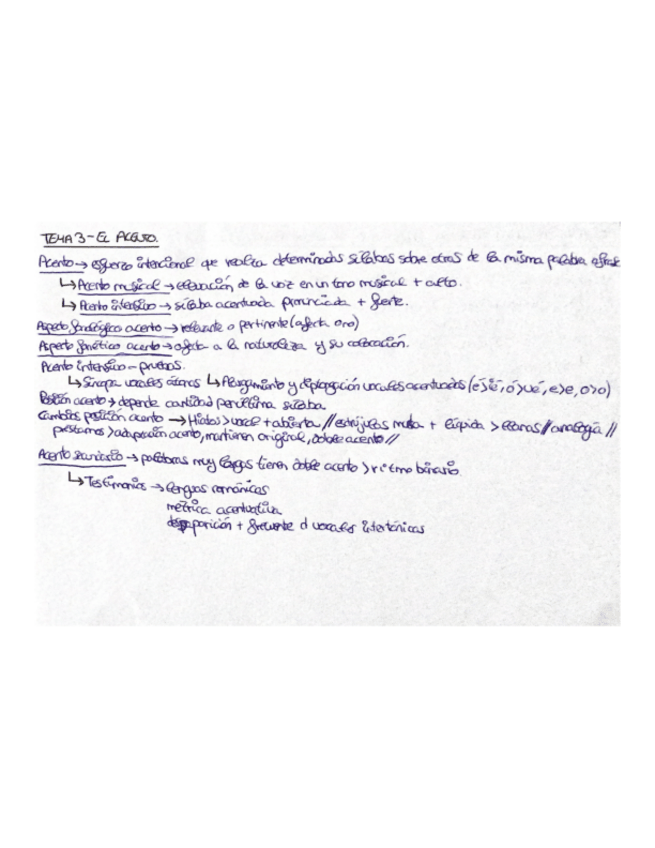 TEMA 3 - EL ACENTO.
Acento → esfuerzo intencional que realiza determinadas sílabas sobre otras de la misma palabra o frase
↳ Acento musical → elevación de la voz en un tono musical + alto.
↳ Acento intensivo → sílaba acentuada pronunciada + fuerte.
Aspecto fonológico acento → relevante o pertinente (afecta o no)
Aspecto fonético acento → afecta a la naturaleza y su colocación.
Acento intensivo - pruebas.
↳ Síncopa vocales átonas ↳ Alargamiento y diptongación vocales acentuadas (é>ié, ó>ué, e>e, o>o)
Posición acento → depende cantidad penúltima sílaba.
Cambios posición acento → Hiatos > vocal + abierta // esdrújulas muta + líquida > llanas // analogía //
préstamos > adaptación acento, mantienen original, doble acento //
Acento secundario → palabras muy largas tienen doble acento > ritmo binario.
↳ Testimonios → lenguas románicas
métrica acentuativa
desaparición + frecuente d vocales intertónicas